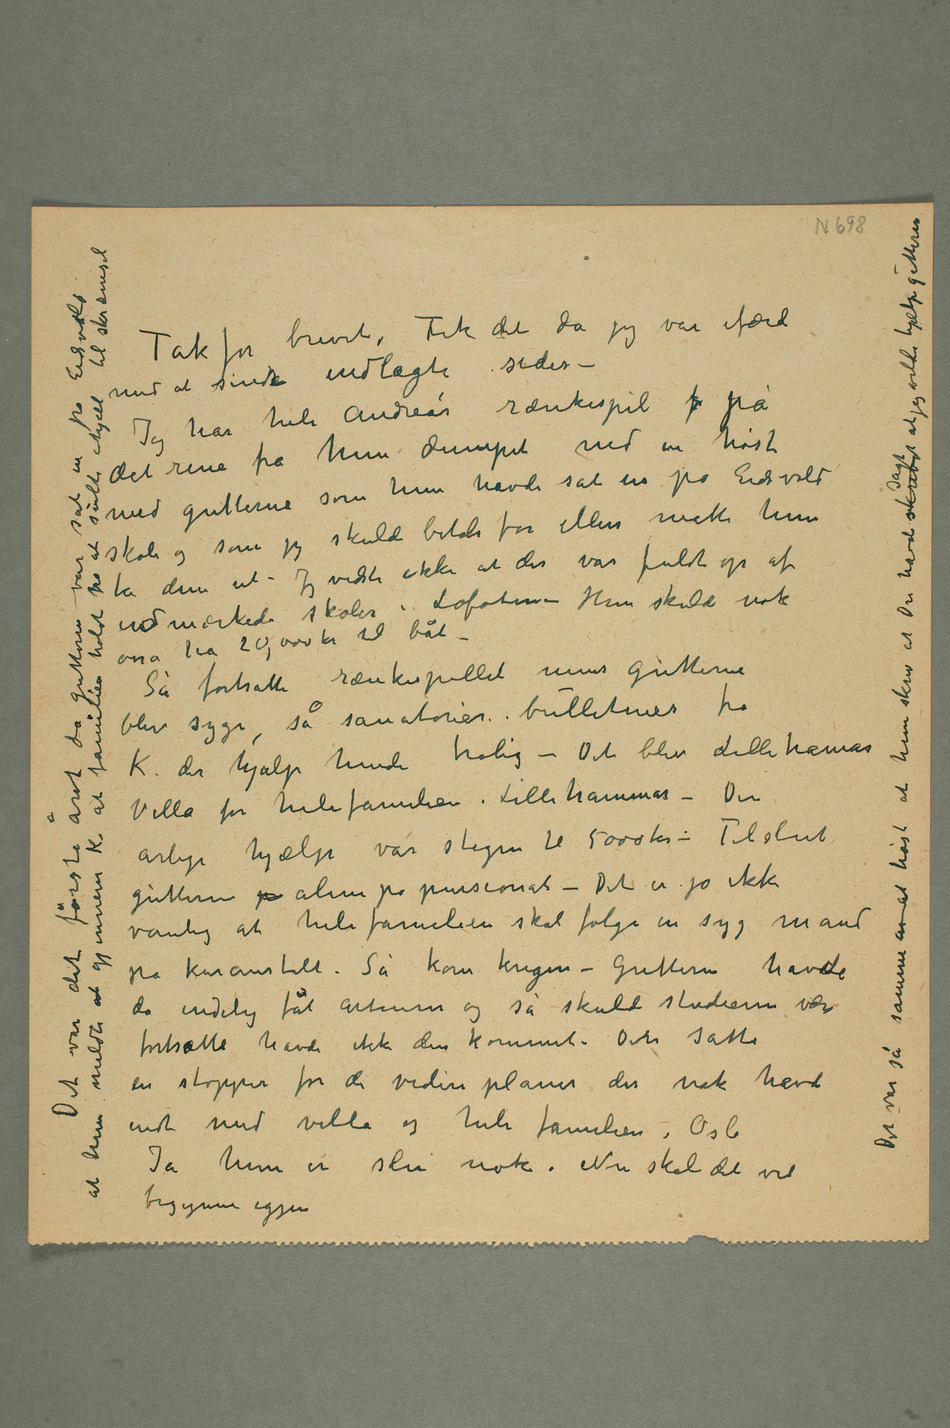 N 698
Tak for brevet. Fik det da jeg var ifærd
med at sende indlagte sider –
Jeg har hele Andreas rænkespil på
det rene fra hun dumpet ned en høst
med gutterne som hun havde sat in på Eidsvold
skole og som jeg skulde betale for ellers måtte hun
ta dem ut – Jeg vidste ikke at der var fuldt op af
udmærkede skoler i Lofoten – Hun skulde nok
osså ha 20,000 kr til båt –
Så fortsatte rænkespillet mens gutterne
blev syge, så sanatorier. bulletiner fra
K. der hjalp hende trolig – Det blev Lillehamar
Villa for hele familien i Lillehammar – Den
årlige hjælp var stegen til 5000 kr – Tilslut
gutterne alene på pensionat – Det er jo ikke
vanlig at hele familien skal følge en syg mand
på kuranstalt. Så kom krigen – Gutterne havde
da endelig fåt artium og så skulde studierne være
fortsatte havde ikke den kommet. Den satte
en stopper for de videre planer der nok havde
endt med villa og hele familien i Oslo
Ja hun er slu nok. Nu skal det vel
begynne igjen
Det var det første året da gutterne var sat in på Eidsvold
at hun meldte gjennem K at familien holdt på at sulte ihjæl til skræmsel
Det var så samme høst at hun skrev at Du havde sagt at jeg vilde hjælpe gutterne